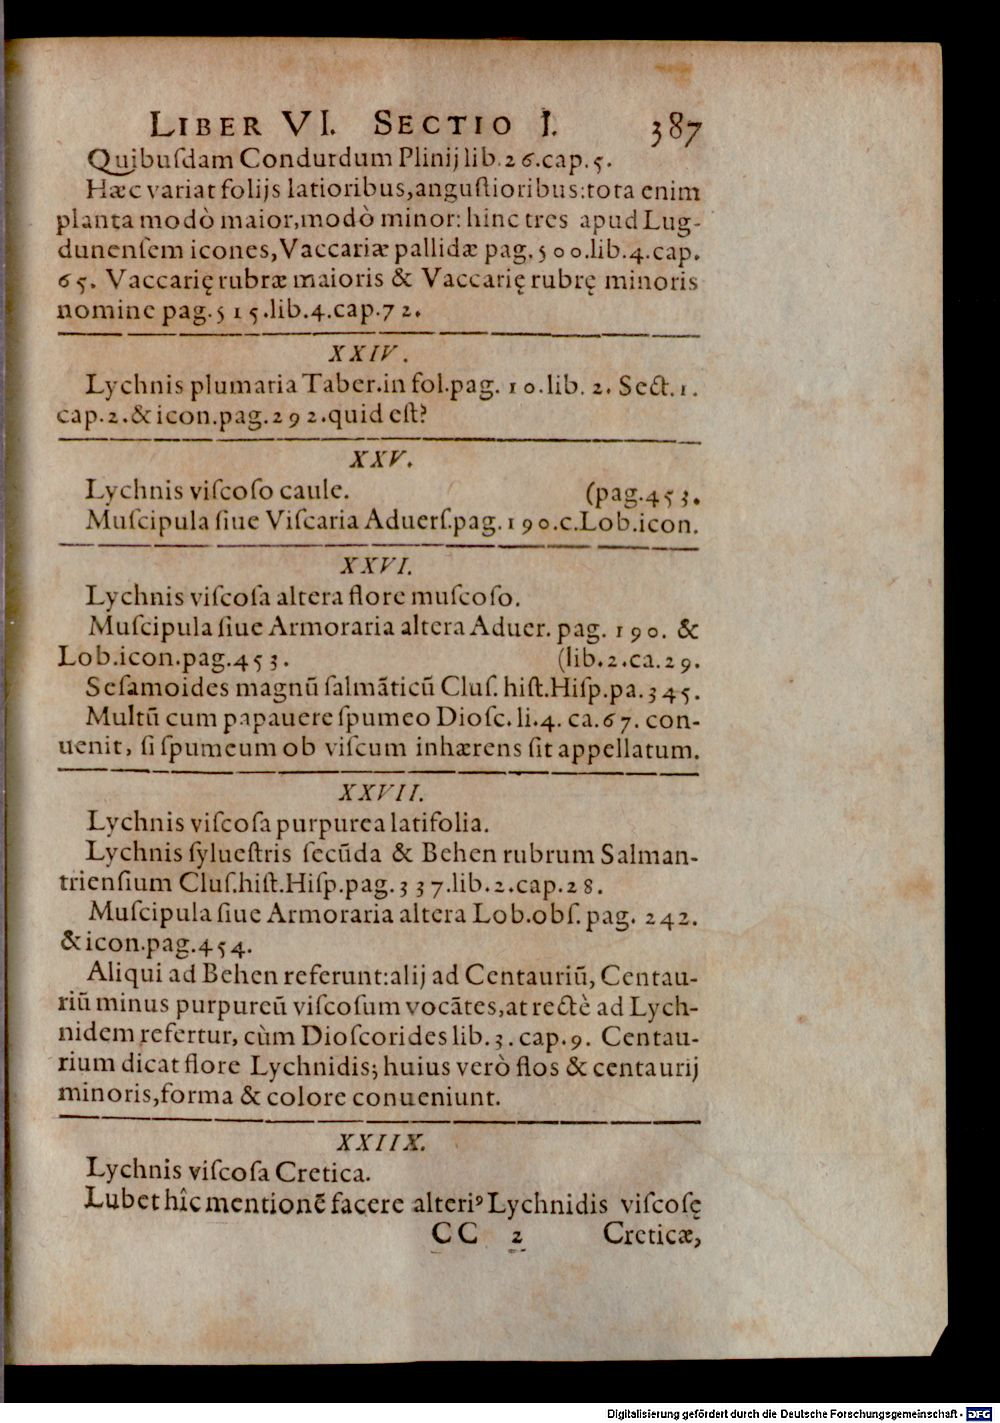 LIBER VI. SECTIO I. 387
Quibuſdam Condurdum Plinij lib.26.cap.5.
Hæc variat folijs latioribus,anguſtioribus:tota enim
planta modò maior,modò minor: hinc tres apud Lug-
dunenſem icones,Vaccariæ pallidæ pag.500.lib.4.cap.
65. Vaccarię rubræ maioris & Vaccarię rubrę minoris
nomine pag.515.lib.4.cap.72.
XXIV.
Lychnis plumaria Taber.in fol.pag.10.lib.2.Sect.1.
cap.2.& icon.pag.292.quid eſt?
XXV.
Lychnis viſcoſo caule. (pag.453.
Muſcipula ſiue Viſcaria Aduerſ.pag.190.c.Lob.icon.
XXVI.
Lychnis viſcoſa altera flore muſcoſo.
Muſcipula ſiue Armoraria altera Aduer. pag. 190. &
Lob.icon.pag.453. (lib.2.ca.29.
Seſamoides magnũ ſalmãticũ Cluſ. hiſt.Hiſp.pa.345.
Multũ cum papauere ſpumeo Dioſc. li.4. ca.67. con-
uenit, ſi ſpumeum ob viſcum inhærens ſit appellatum.
XXVII.
Lychnis viſcoſa purpurea latifolia.
Lychnis ſylueſtris ſecũda & Behen rubrum Salman-
trienſium Cluſ.hiſt.Hiſp.pag.337.lib.2.cap.28.
Muſcipula ſiue Armoraria altera Lob.obſ. pag. 242.
& icon.pag.454.
Aliqui ad Behen referunt:alij ad Centauriũ, Centau-
riũ minus purpureũ viſcoſum vocãtes,at rectè ad Lych-
nidem refertur, cùm Dioſcorides lib.3.cap.9. Centau-
rium dicat flore Lychnidis; huius verò flos & centaurij
minoris,forma & colore conueniunt.
XXIIX.
Lychnis viſcoſa Cretica.
Lubet hîc mentionẽ facere alteriꝰ Lychnidis viſcoſę
CC 2 Creticæ,
Digitalisierung gefördert durch die Deutsche Forschungsgemeinschaft - DFG